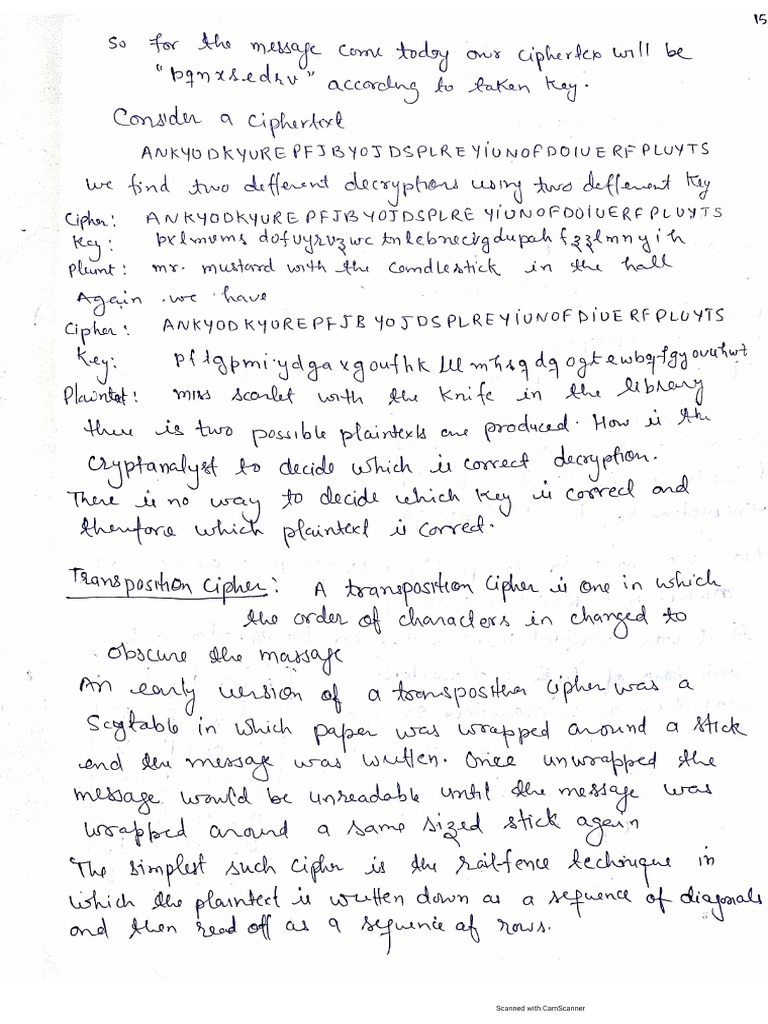 15
So for the message come today our ciphertex will be
"bqnxsedrv" according to taken key.
Consider a Ciphertext
ANKYODKYUREPFJBYOJDSPLREYiUNOFDOIUERFPLUYTS
We find two different decryptions using two deffenent Key
Cipher: ANKYODKYUREPFJBYOJDSPLREYiUNOFDOIUERFPLUYTS
Key: pxlmvms dofuyrvzwc tnlebnecirgdupah fzzlmnyih
Plaint: mr. mustard with the candlestick in the hall
Again we have
Cipher: ANKYODKYUREPFJBYOJDSPLREYiUNOFDIUERFPLUYTS
Key:
Plaintet: miss scarlet with the knife in the library
there is two possible plaintexts are produced. How is the
cryptanalyst to decide which is correct decryption.
There is no way to decide which key is correct and
therefore which plaintext is correct.
Transposition Cipher: A transposition Cipher is one in which
the order of characters in changed to
obscure the massage
An early version of a transposition cipher was a
Scytable in which paper was wrapped around a stick
and the message was written. Once unwrapped the
message would be unreadable until the message was
wrapped around a same sized stick again
The simplest such cipher is the railfence technique in
which the plaintext is written down as a sequence of diagonals
and then read off as a sequence of rows.
Scanned with CamScanner